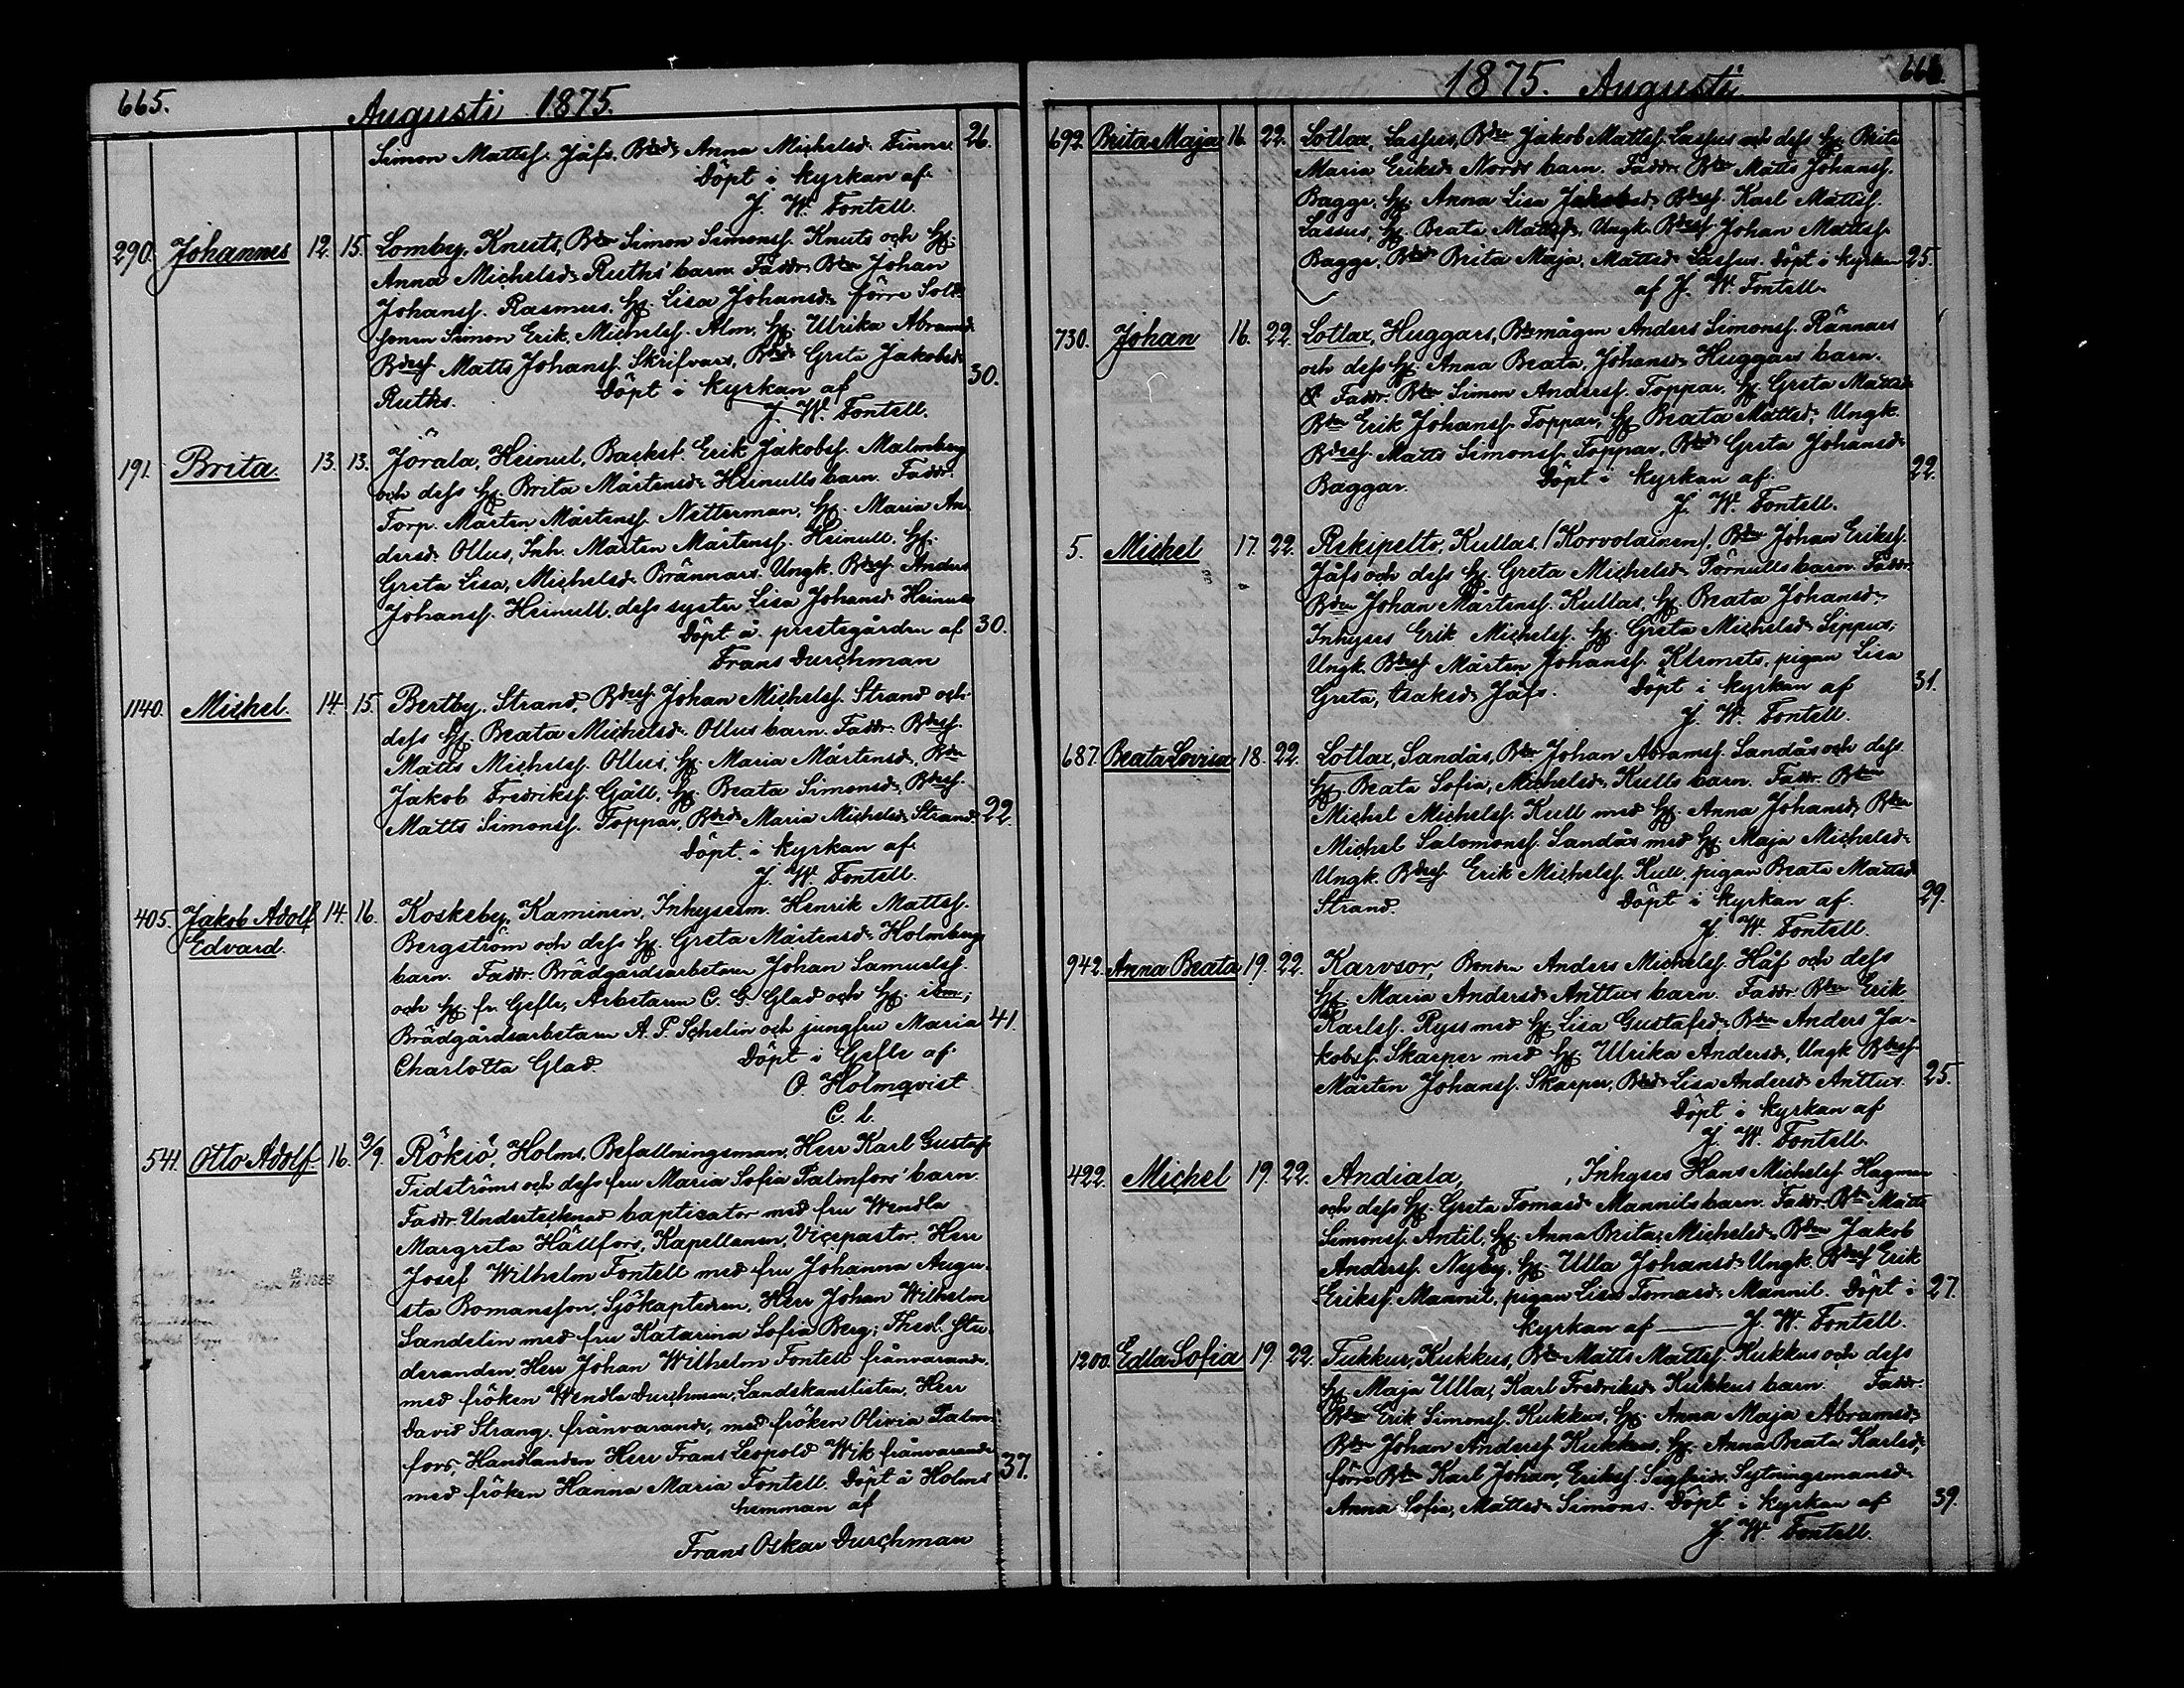 665.
Augusti 1875.
Simon Mattss. Jåfs. Bded. Anna Michelsd. Finne. 26.
Döpt i kyrkan af
J. W. Fontell.
290. Johannes 12. 15. Lomby, Knuts, Bdn Simon Simonss. Knuts och Hu.
Anna Michelsd. Ruths' barn. Faddr: Bdn Johan
Johanss. Rasmus. Hu. Lisa Johansd. förre Sold.
sonen Simon Erik, Michelss. Alm, Hu. Ulrika Abramsd.
Bdess. Matts Johanss. Skrifvars, Bded. Greta Jakobsd.
Ruths. Döpt i kyrkan af 30.
J. W. Fontell.
191. Brita. 13. 13. Jörala, Heinul, Backst. Erik Jakobss. Malmberg
och dess Hu. Brita Mårtensd. Heinulls barn. Faddr:
Torp. Mårten Mårtenss. Netterman, Hu. Maria An-
dersd. Ollus, Inh. Mårten Mårtenss. Heinull. Hu.
Greta Lisa, Michelsd. Brännars. Ungk. Bdess. Anders
Johanss. Heinull. dess syster Lisa Johansd. Heinull
Döpt å prestegården af 30.
Frans Durchman
1140. Michel. 14. 15. Bertby. Strand, Bdess. Johan Michelss. Strand och
dess Hu. Beata Michelsd. Ollus barn. Faddr: Bdess.
Matts Michelss. Ollus, Hu. Maria Mårtensd., Bdn
Jakob Fredrikss. Gåll, Hu. Beata Simonsd., Bdess.
Matts Simonss. Toppar, Bded. Maria Michelsd. Strand. 22.
Döpt i kyrkan af
J. W. Fontell.
405. Jakob Adolf 14. 16. Koskeby, Kaminen, Inhysesm. Henrik Mattss.
Edvard. Bergström och dess Hu. Greta Mårtensd. Holmbergs
barn. Faddr: Brädgårdsarbetaren Johan Samuelss.
och Hu. fr. Gefle, Arbetaren C. G. Glad och Hu.
Brädgårdsarbetaren A. P. Schelin och jungfru Maria 41.
Charlotta Glad. Döpt i Gefle af
O. Holmqvist
C. l.
541. Otto Adolf. 16. 9/9. Rökiö, Holms, Befallningsman, Herr Karl Gustaf
Tidströms och dess fru Maria Sofia Palmfors' barn.
Faddr. Undertecknad baptisator med fru Wendla
Margreta Hällfors, Kapellanen, Vicepastor Herr
Josef Wilhelm Fontell med fru Johanna Augu-
sta Romansson, Sjökaptenen, Herr Johan Wilhelm
Sandelin med fru Katarina Sofia Berg; Theol. Stu-
deranden, Herr Johan Wilhelm Fontell frånvarande,
med fröken Wendla Durchman, Landskanslisten, Herr
David Strang, frånvarande, med fröken Olivia Palm-
fors, Handlanden Herr Frans Leopold Wik frånvarande
med fröken Hanna Maria Fontell. Döpt å Holms 37.
hemman af
Frans Oskar Durchman
1875. Augusti. 666.
692. Brita Maja 16. 22. Lotlax, Lassus, Bdn Jakob Mattss. Lassus och dess Hu. Brita
Maria Eriksd. Nords barn. Faddr: Bdn Matts Johanss.
Bagge, Hu. Anna Lisa Jakobsd. Bdess. Karl Mattss.
Lassus, Hu. Beata Mattsd., Ungk. Bdess. Johan Mattss.
Bagge, Bded. Brita Maja, Mattsd. Lassus. Döpt i kyrkan 25.
af J. W. Fontell.
730. Johan 16. 22. Lotlax, Huggars, Bdemågen Anders Simonss. Rännars
och dess Hu. Anna Beata, Johansd. Huggars barn.
Faddr. Bdn Simon Anderss. Toppar, Hu. Greta Mattsd.
Bdn Erik Johanss. Toppar, Hu. Beata Mattsd., Ungk.
Bdess. Matts Simonss. Toppar, Bded. Greta Johansd.
Baggar. Döpt i kyrkan af 22.
J. W. Fontell.
5. Michel 17. 22. Rekipelto, Kullas, (Korvolainen), Bdn Johan Erikss.
Jåfs och dess Hu. Greta Michelsd. Törnulls barn. Faddr.
Bdn Johan Mårtenss. Kullas, Hu. Beata Johansd.
Inhyses Erik Michelss. Hu. Greta Michelsd. Sippus,
Ungk. Bdess. Mårten Johanss. Klemets, pigan Lisa
Greta, Isaksd. Jåfs. Döpt i kyrkan af 31.
J. W. Fontell.
687. Beata Lovisa 18. 22. Lotlax, Sandås, Bdn Johan Abramss. Sandås och dess
Hu. Beata Sofia, Michelsd. Kulls barn. Faddr. Bdn
Michel Michelss. Kull med Hu. Anna Johansd., Bdn
Michel Salomonss. Sandås med Hu. Maja Michelsd.
Ungk. Bdess. Erik Michelss. Kull, pigan Beata Mattsd.
Strand. Döpt i kyrkan af 29.
J. W. Fontell.
942. Anna Beata 19. 22. Karvsor, Bonden Anders Michelss. Håf och dess
Hu. Maria Andersd. Anttus barn. Faddr: Bdn Erik
Karlss. Ryss med Hu. Lisa Gustafsd., Bdn Anders Ja-
kobss. Skarper med Hu. Ulrika Andersd., Ungk. Bdess.
Mårten Johanss. Skarper, Bded. Lisa Andersd. Anttus. 25.
Döpt i kyrkan af
J. W. Fontell.
422. Michel 19. 22. Andiala, , Inhyses Hans Michelss. Hagman
och dess Hu. Greta Tomasd. Mannils barn. Faddr. Bdn Matts
Simonss. Antil, Hu. Anna Brita, Michelsd. Bdn Jakob
Anderss. Nyby, Hu. Ulla Johansd. Ungk. Bdess. Erik
Erikss. Mannil, pigan Lisa Tomasd. Mannil. Döpt i 27.
kyrkan af — J. W. Fontell.
1200. Edla Sofia 19. 22. Tukkur, Kukkus, Bdn Matts Mattss. Kukkus och dess
Hu. Maja Ulla, Karl Fredriksd. Kukkus barn. Faddr.
Bdn Erik Simonss. Kukkus, Hu. Anna Maja Abramsd.
Bdn Johan Anderss. Kukkus, Hu. Anna Beata Karlsd.,
förre Bdn Karl Johan, Erikss. Sigfrids, Sytningsmansd.
Anna Sofia, Mattsd. Simons. Döpt i kyrkan af 39.
J. W. Fontell.